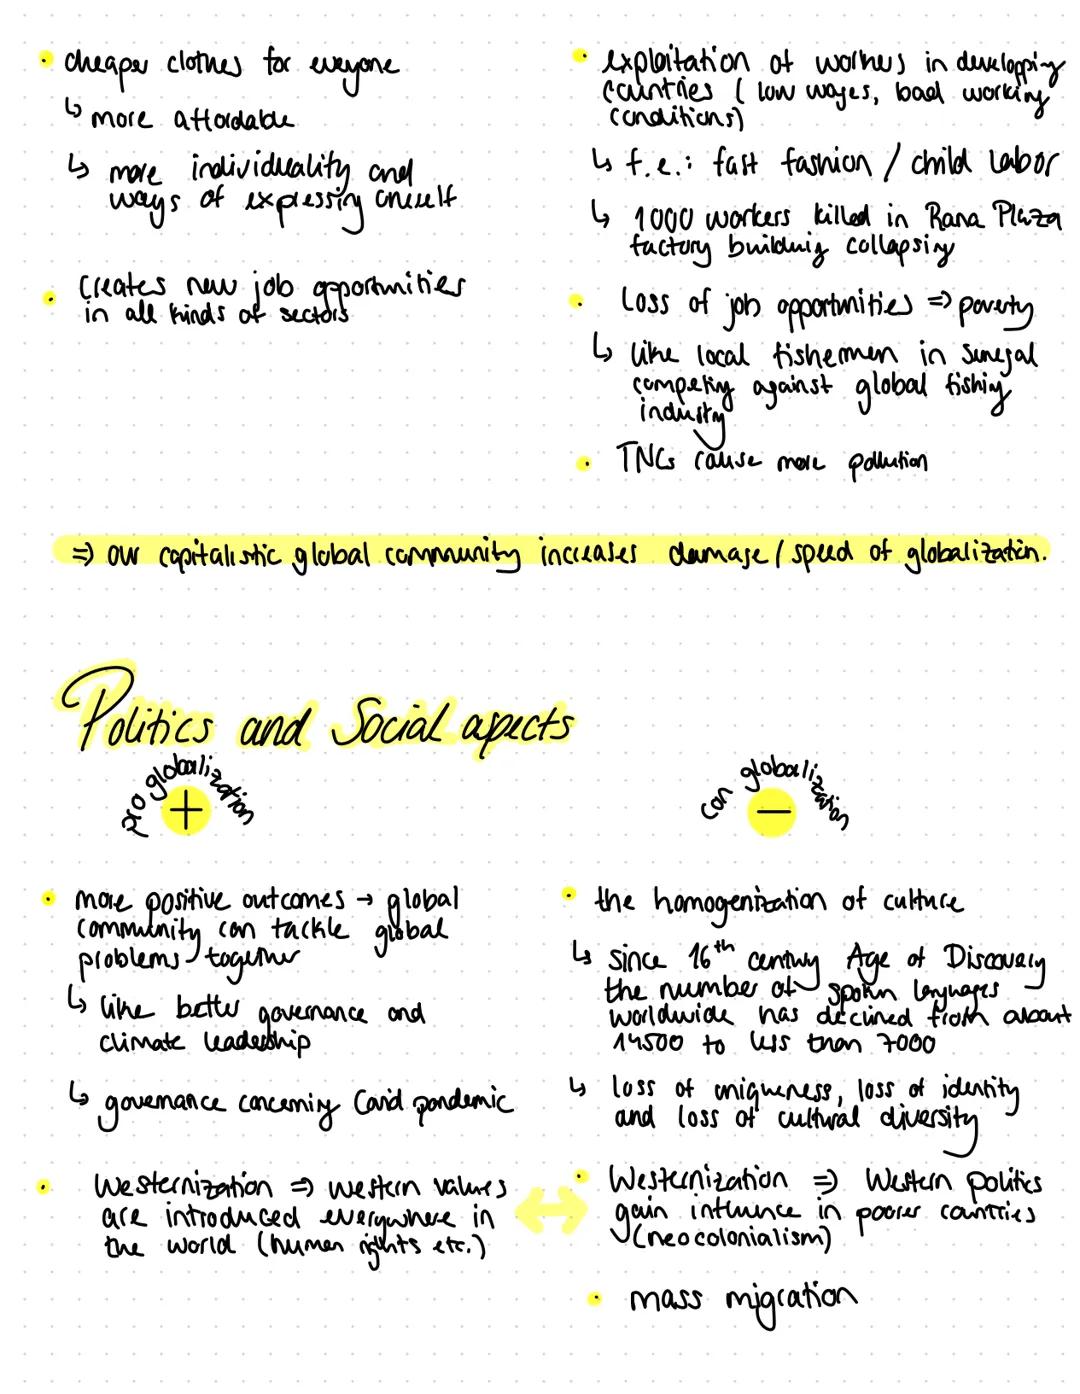 • cheaper clothes for everyone
↳ more affordable
↳ more individuality and
ways of expressing oneself
• creates new job opportunities
in all kinds of sectors
• exploitation of workers in developping
countries ( low wages, bad working
conditions)
↳ f.e.: fast fashion / child labor
↳ 1000 workers killed in Rana Plaza
factory building collapsing
• Loss of job opportunities => poverty
↳ like local fishermen in Senegal
competing against global fishing
industry
• TNCs cause more pollution
=> our capitalistic global community increases damage / speed of globalization.
Politics and Social aspects
pro globalization
+
con globalization
−
• more positive outcomes → global
community can tackle global
problems together
↳ like better governance and
climate leadership
↳ governance concerning Covid pandemic
• Westernization => western values
are introduced everywhere in
the world (human rights etc.)
• the homogenization of culture
↳ since 16th century Age of Discovery
the number of spoken languages
worldwide has declined from about
14500 to less than 7000
↳ loss of uniqueness, loss of identity
and loss of cultural diversity
• Westernization => Western politics
gain influence in poorer countries
(neocolonialism)
• mass migration